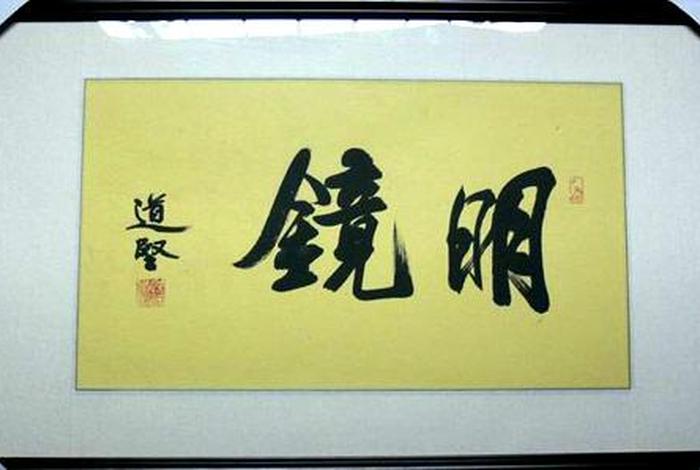 明鏡
道堅